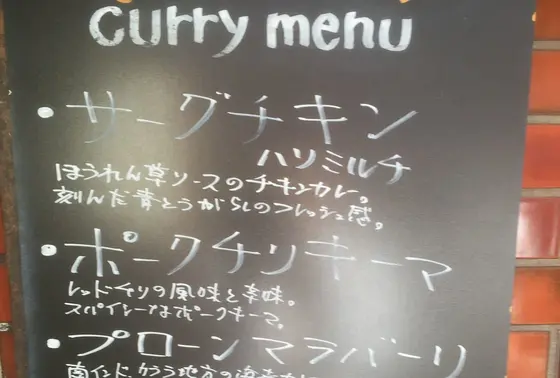 curry menu
・サーグチキン
ハリミルチ
ほうれん草ソースのチキンカレー。
刻んだ青とうがらしのフレッシュ感。
・ポークチリキーマ
レッドチリの風味と辛味。
スパイシーなポークキーマ。
・プローンマラバーリ
南インド、ケララ地方の海老カレー